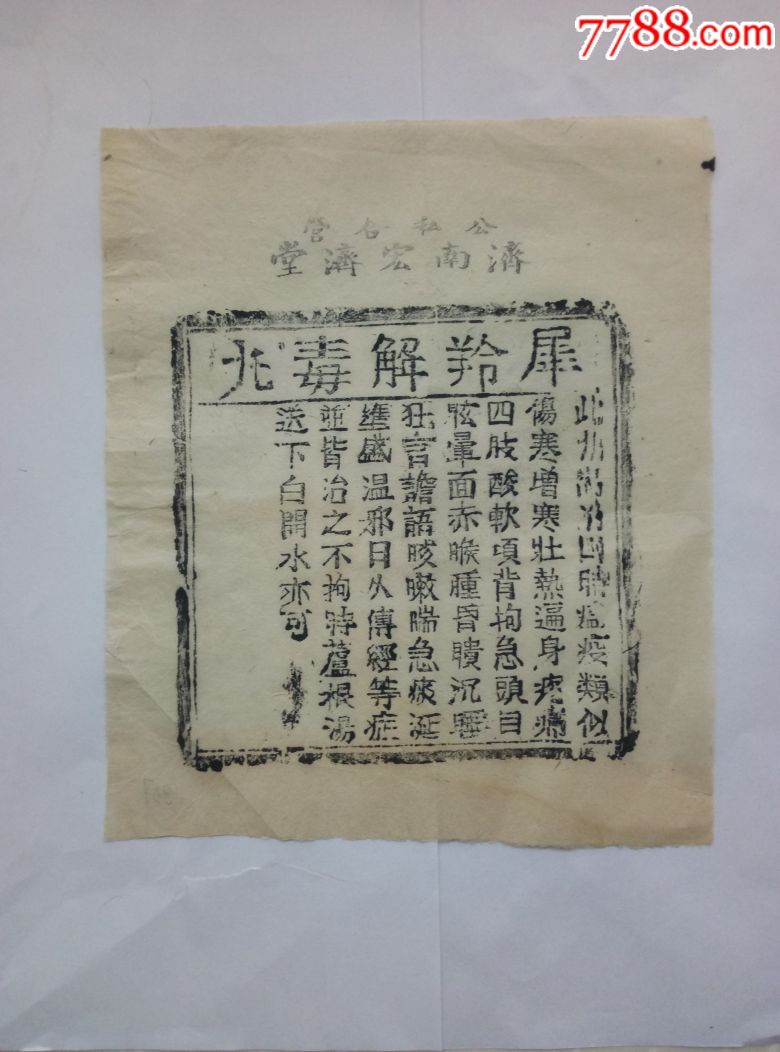 7788.com
公私合營
濟南宏濟堂
犀羚解毒丸
此丸耑治四時瘟疫類似
傷寒增寒壯熱遍身疼痛
四肢酸軟項背拘急頭目
眩暈面赤喉腫昏瞶沉睡
狂言譫語咳嗽喘急痰涎
壅盛温邪日久傳經等症
並皆治之不拘時蘆根湯
送下白開水亦可